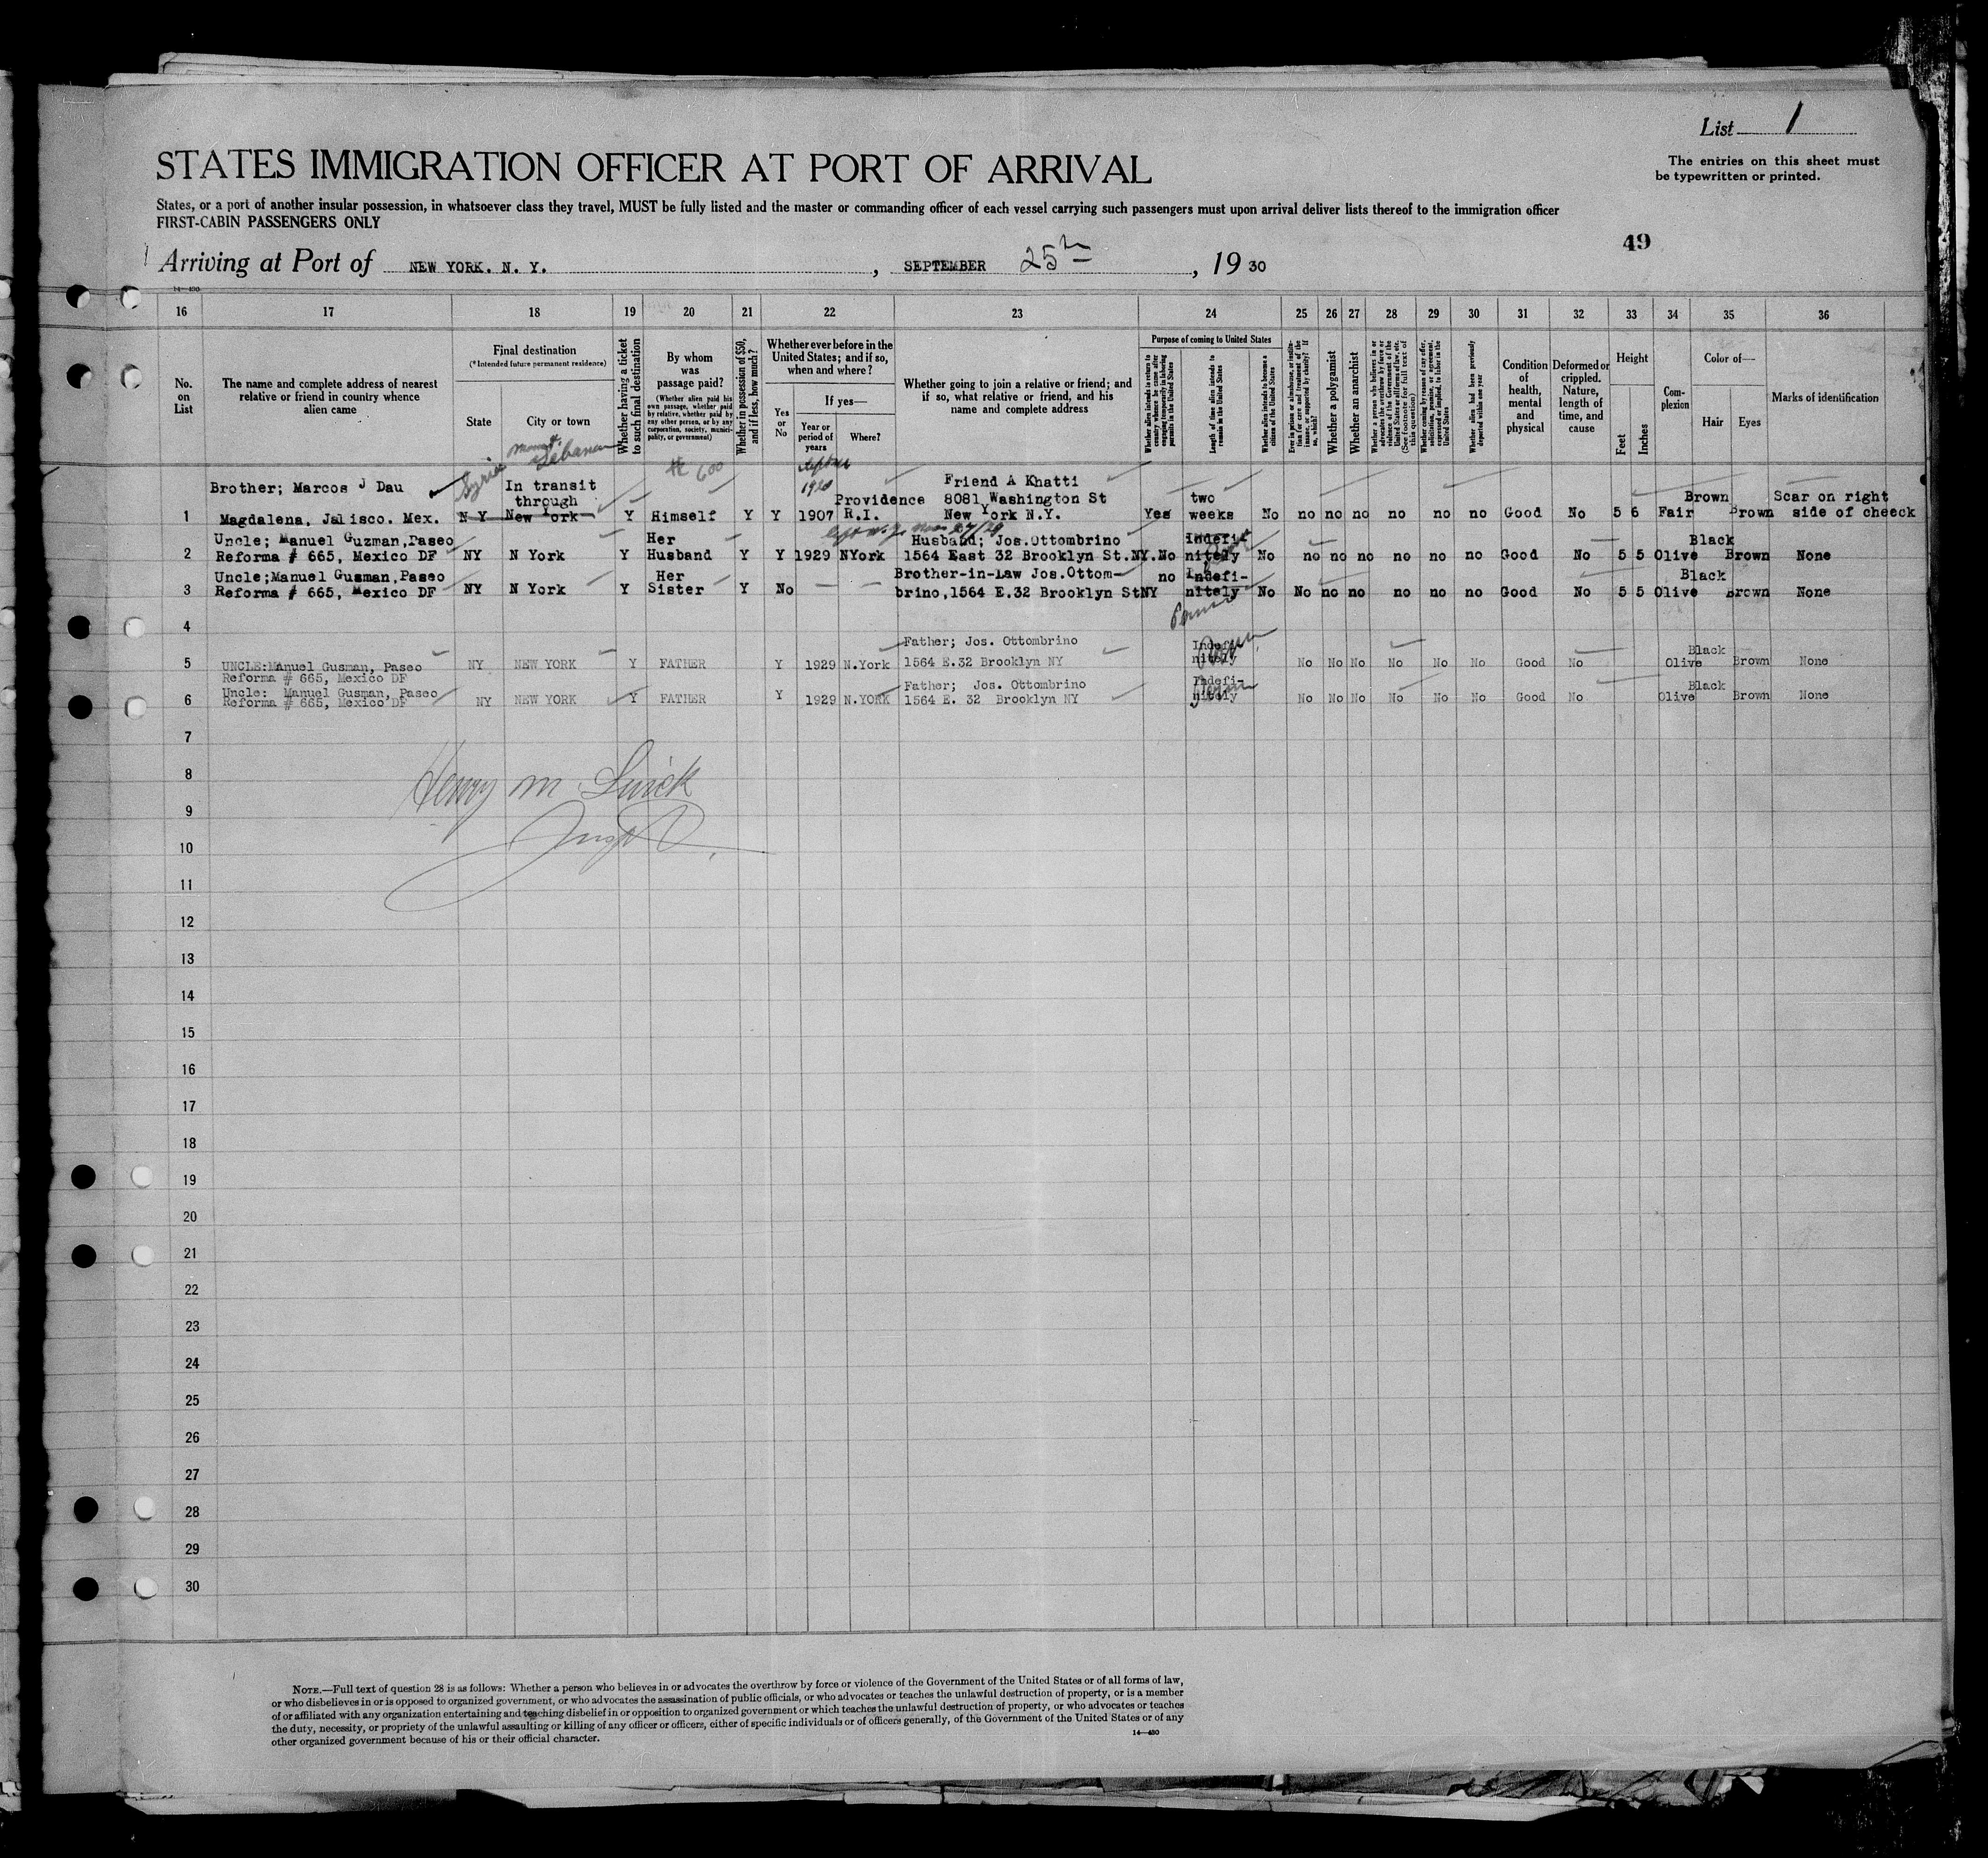 List 1
STATES IMMIGRATION OFFICER AT PORT OF ARRIVAL
The entries on this sheet must
be typewritten or printed.
States, or a port of another insular possession, in whatsoever class they travel, MUST be fully listed and the master or commanding officer of each vessel carrying such passengers must upon arrival deliver lists thereof to the immigration officer
FIRST-CABIN PASSENGERS ONLY
49
Arriving at Port of NEW YORK. N. Y. , SEPTEMBER 25th , 19 30
16 17 18 19 20 21 22 23 24 25 26 27 28 29 30 31 32 33 34 35 36
No. on List
The name and complete address of nearest relative or friend in country whence alien came
Final destination
(*Intended future permanent residence)
State
City or town
Whether having a ticket to such final destination
By whom was passage paid?
(Whether alien paid his own passage, whether paid by relative, whether paid by any other person, or by any corporation, society, municipality, or government)
Whether in possession of $50, and if less, how much?
Whether ever before in the United States; and if so, when and where?
Yes or No
If yes—
Year or period of years
Where?
Whether going to join a relative or friend; and if so, what relative or friend, and his name and complete address
Purpose of coming to United States
Whether alien intends to return to country whence he came after engaging temporarily in laboring pursuits in the United States
Length of time alien intends to remain in the United States
Whether alien intends to become a citizen of the United States
Ever in prison or almshouse, or institution for care and treatment of the insane, or supported by charity? If so, which?
Whether a polygamist
Whether an anarchist
Whether a person who believes in or advocates the overthrow by force or violence of the Government of the United States or all forms of law, etc. (See footnote for full text of this question)
Whether coming by reason of any offer, solicitation, promise, or agreement, expressed or implied, to labor in the United States
Whether alien had been previously deported within one year
Condition of health, mental and physical
Deformed or crippled. Nature, length of time, and cause
Height
Feet
Inches
Complexion
Color of—
Hair
Eyes
Marks of identification
Syria Mount Lebanon
600
1920
Brother; Marcos J Dau In transit Friend A Khatti
through Providence 8081 Washington St two Brown Scar on right
1 Magdalena, Jalisco. Mex. N Y New York Y Himself Y Y 1907 R.I. New York N.Y. Yes weeks No no no no no no no Good No 5 6 Fair Brown side of cheeck
Uncle; Manuel Guzman,Paseo Her Husband; Jos.Ottombrino Indefi Black
2 Reforma # 665, Mexico DF NY N York Y Husband Y Y 1929 NYork 1564 East 32 Brooklyn St.NY. No nitely No no no no no no no Good No 5 5 Olive Brown None
Uncle;Manuel Gusman,Paseo Her Brother-in-Law Jos.Ottom- no Indefi- Black
3 Reforma # 665, Mexico DF NY N York Y Sister Y No — — brino,1564 E.32 Brooklyn StNY nitely No No no no no no no Good No 5 5 Olive Brown None
4
Father; Jos. Ottombrino Indefi- Black
5 UNCLE:Manuel Gusman, Paseo NY NEW YORK Y FATHER Y 1929 N.York 1564 E.32 Brooklyn NY nitely No No No No No No Good No Olive Brown None
Reforma # 665, Mexico DF
Uncle: Manuel Gusman, Paseo Y Father; Jos. Ottombrino Indefi- Black
6 Reforma # 665, Mexico DF NY NEW YORK Y FATHER 1929 N.YORK 1564 E. 32 Brooklyn NY nitely No No No No No No Good No Olive Brown None
7
8 Henry M
9
10
11
12
13
14
15
16
17
18
19
20
21
22
23
24
25
26
27
28
29
30
NOTE.—Full text of question 28 is as follows: Whether a person who believes in or advocates the overthrow by force or violence of the Government of the United States or of all forms of law,
or who disbelieves in or is opposed to organized government, or who advocates the assassination of public officials, or who advocates or teaches the unlawful destruction of property, or is a member
of or affiliated with any organization entertaining and teaching disbelief in or opposition to organized government or which teaches the unlawful destruction of property, or who advocates or teaches
the duty, necessity, or propriety of the unlawful assaulting or killing of any officer or officers, either of specific individuals or of officers generally, of the Government of the United States or of any
other organized government because of his or their official character.
14—430